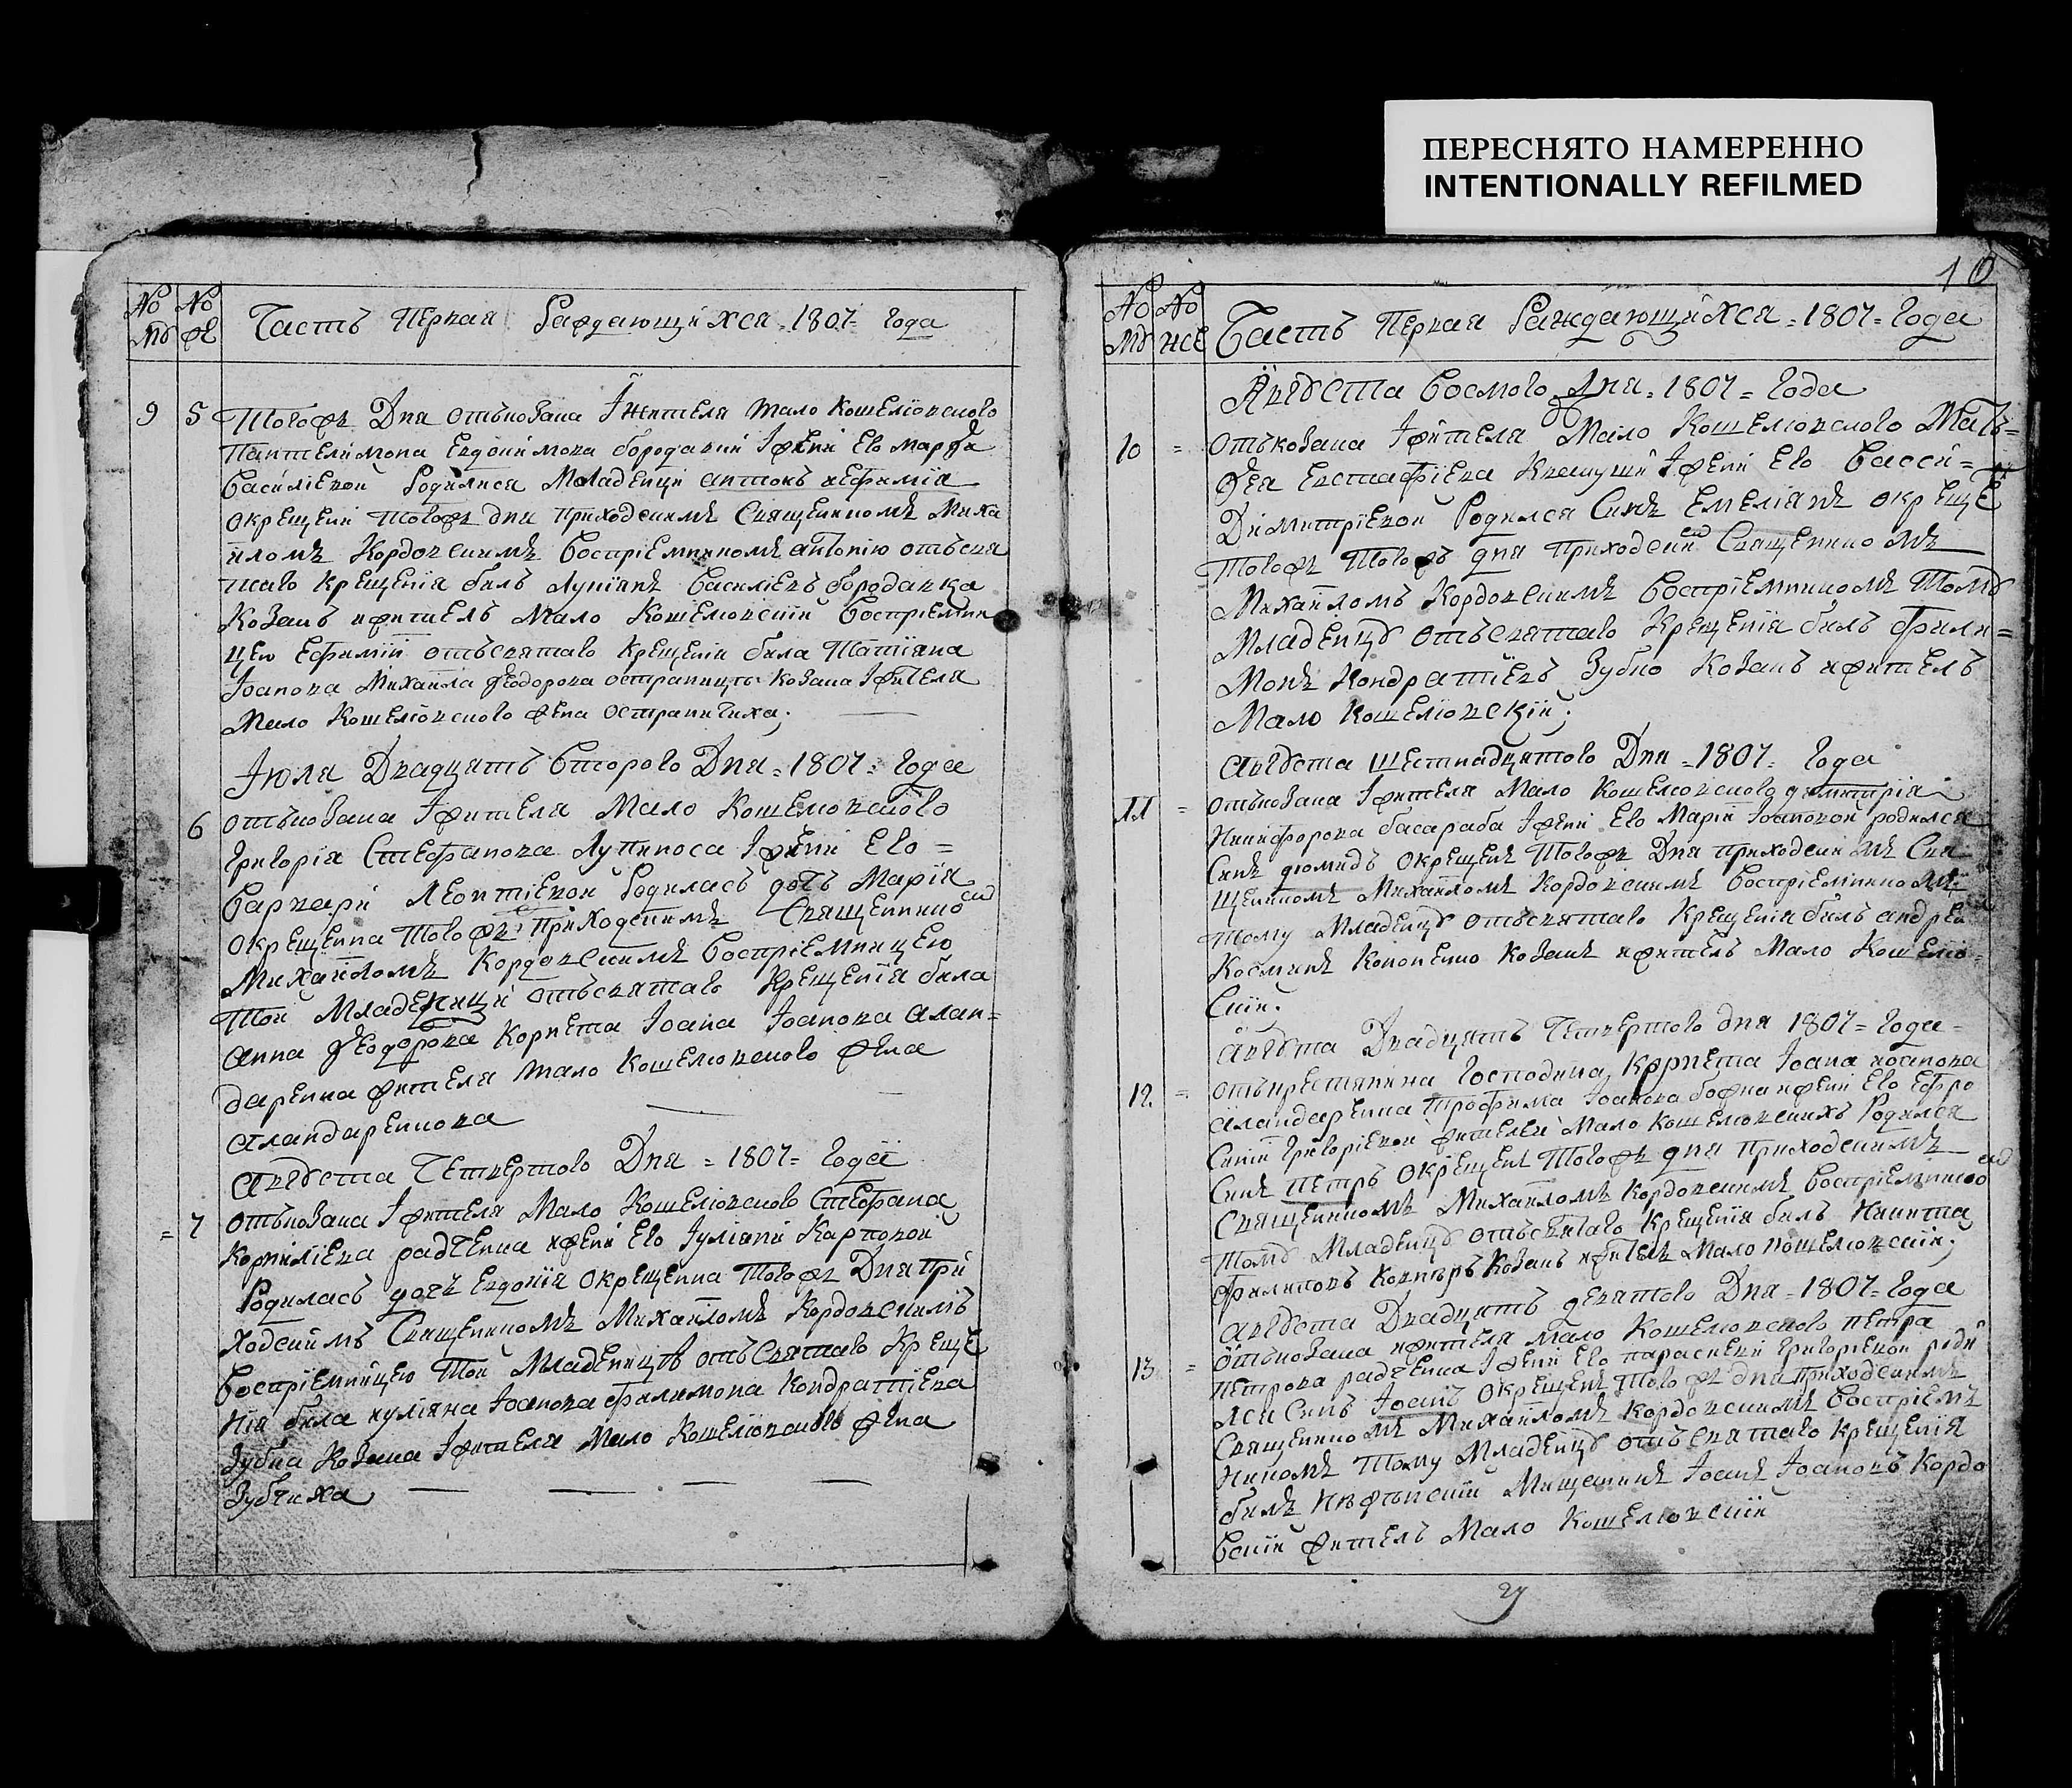 ПЕРЕСНЯТО НАМЕРЕННО
INTENTIONALLY REFILMED
No No
мб фе
Часть Первая Раждающихся = 1807 = Года
9 5 Тогожъ Дня отъкозака Iжителя Мало Кошелювского
Пантелимона Евдокимова бородавки Iжени Его Марфи
Василіевой Родилися Младенци антонъ иефимія
окрещени Тогожъ дня приходскимъ Священикомъ Миха
иломъ Кордовскимъ Воспріемникомъ антонію отъсвя
таго крещенія билъ Лукіянъ Василіевъ бородавка
Козакъ ижитель Мало Кошелювскій Воспріемни
цею Ефимій отъсвятаго крещенія била Татіяна
Iоанова Михаила Феодорова остраници Козака Iжителя
Мало Кошелювского жена остраничиха;
Iюля Двадцять Второго Дня = 1807 = Года
6 отъкозака Iжителя Мало Кошелювского
Григорія Стефанова Лупикоса Iжени Его =
Варвари Леонтіевой Родилась дочь Марія
окрещенна Тогожъ приходскимъ Священико
Михайломъ Кордовскимъ Воспріемницею
Той Младеници отъсвятаго Крещенія била
Анна Феодорова Корнета Iоана Iоанова алан=
даренка жителя Мало Кошелювского жена
аландаренкова
Августа Четвертого Дня = 1807 = Года
= 7 отъкозака Iжителя Мало Кошелювского Стефана
Корниліева радченка ижени Его Iуліяни Карповой
Родилась дочь Евдокія окрещенна Тогожъ Дня при
ходскимъ Священикомъ Михайломъ Кордовскимъ
Воспріемницею Той Младеници отъСвятаго Креще
нія била иуліяна Iоанова филимона Кондратіева
Зубка Козака Iжителя Мало Кошелювского жена
Зубчиха
10
No No
мб же
Часть Первая Раждающихся = 1807 = Года
Августа Восмого Дня = 1807 = Года
10 = отъкозака Iжителя Мало Кошелювского Мать=
фея Евстафіева Квашуки Iжени Его Васси=
Димитріевой Родился Синъ Емеліянъ окреще
Тогожъ дня приходски Священико мъ
Михайломъ Кордовскимъ Воспріемникомъ Тому
Младенцу отъсвятаго Крещенія билъ фили=
монъ Кондратіевъ Зубко Козакъ ижитель
Мало Кошелювскій;
Августа Шестнадцятого Дня = 1807 = Года
11 = отъкозака Iжителя Мало Кошелювского димитрія
Никифорова басараба Iжени Его Маріи Iоановой родился
Синъ диомидъ окрещенъ Тогожъ Дня приходскимъ Свя
щеникомъ Михайломъ Кордовскимъ Воспріемникомъ
Тому Младенцу отъсвятаго Крещенія билъ андрей
Косминъ Кононенко Козакъ ижитель Мало Кошелю=
Скій.
Августа Двадцять Четвертого дня 1807 = Года =
12. = отъкрестянина Господина Корнета Iоана иоанова
аландаренка Трофима Iоанова божка ижени Его Ефро
Синіи Григоріевой жителей Мало Кошелювскихъ Родился
Синъ Петръ окрещенъ Тогожъ дня приходскимъ
Священикомъ Михайломъ Кордовскимъ Воспріемнико
Тому Младенцу отъсвятаго Крещенія билъ Никита
филиповъ Козакъ ижитель Мало Кошелювскій;
Августа Двадцять девятого Дня = 1807 = Года
13 = отъкозака ижителя Мало Кошелювского петра
Петрова радченка Iжени Его параскеви Григоріевой роди
лси Синъ Iоанъ окрещенъ Тогожъ дня приходскимъ
Священикомъ Михайломъ Кордовскимъ Воспріемъ
никомъ Тому Младенцу отъ святаго крещенія
билъ Нѣжинскій Мищанинъ Iоанъ Iоановъ Кордо
Вскій житель Мало Кошелювскій